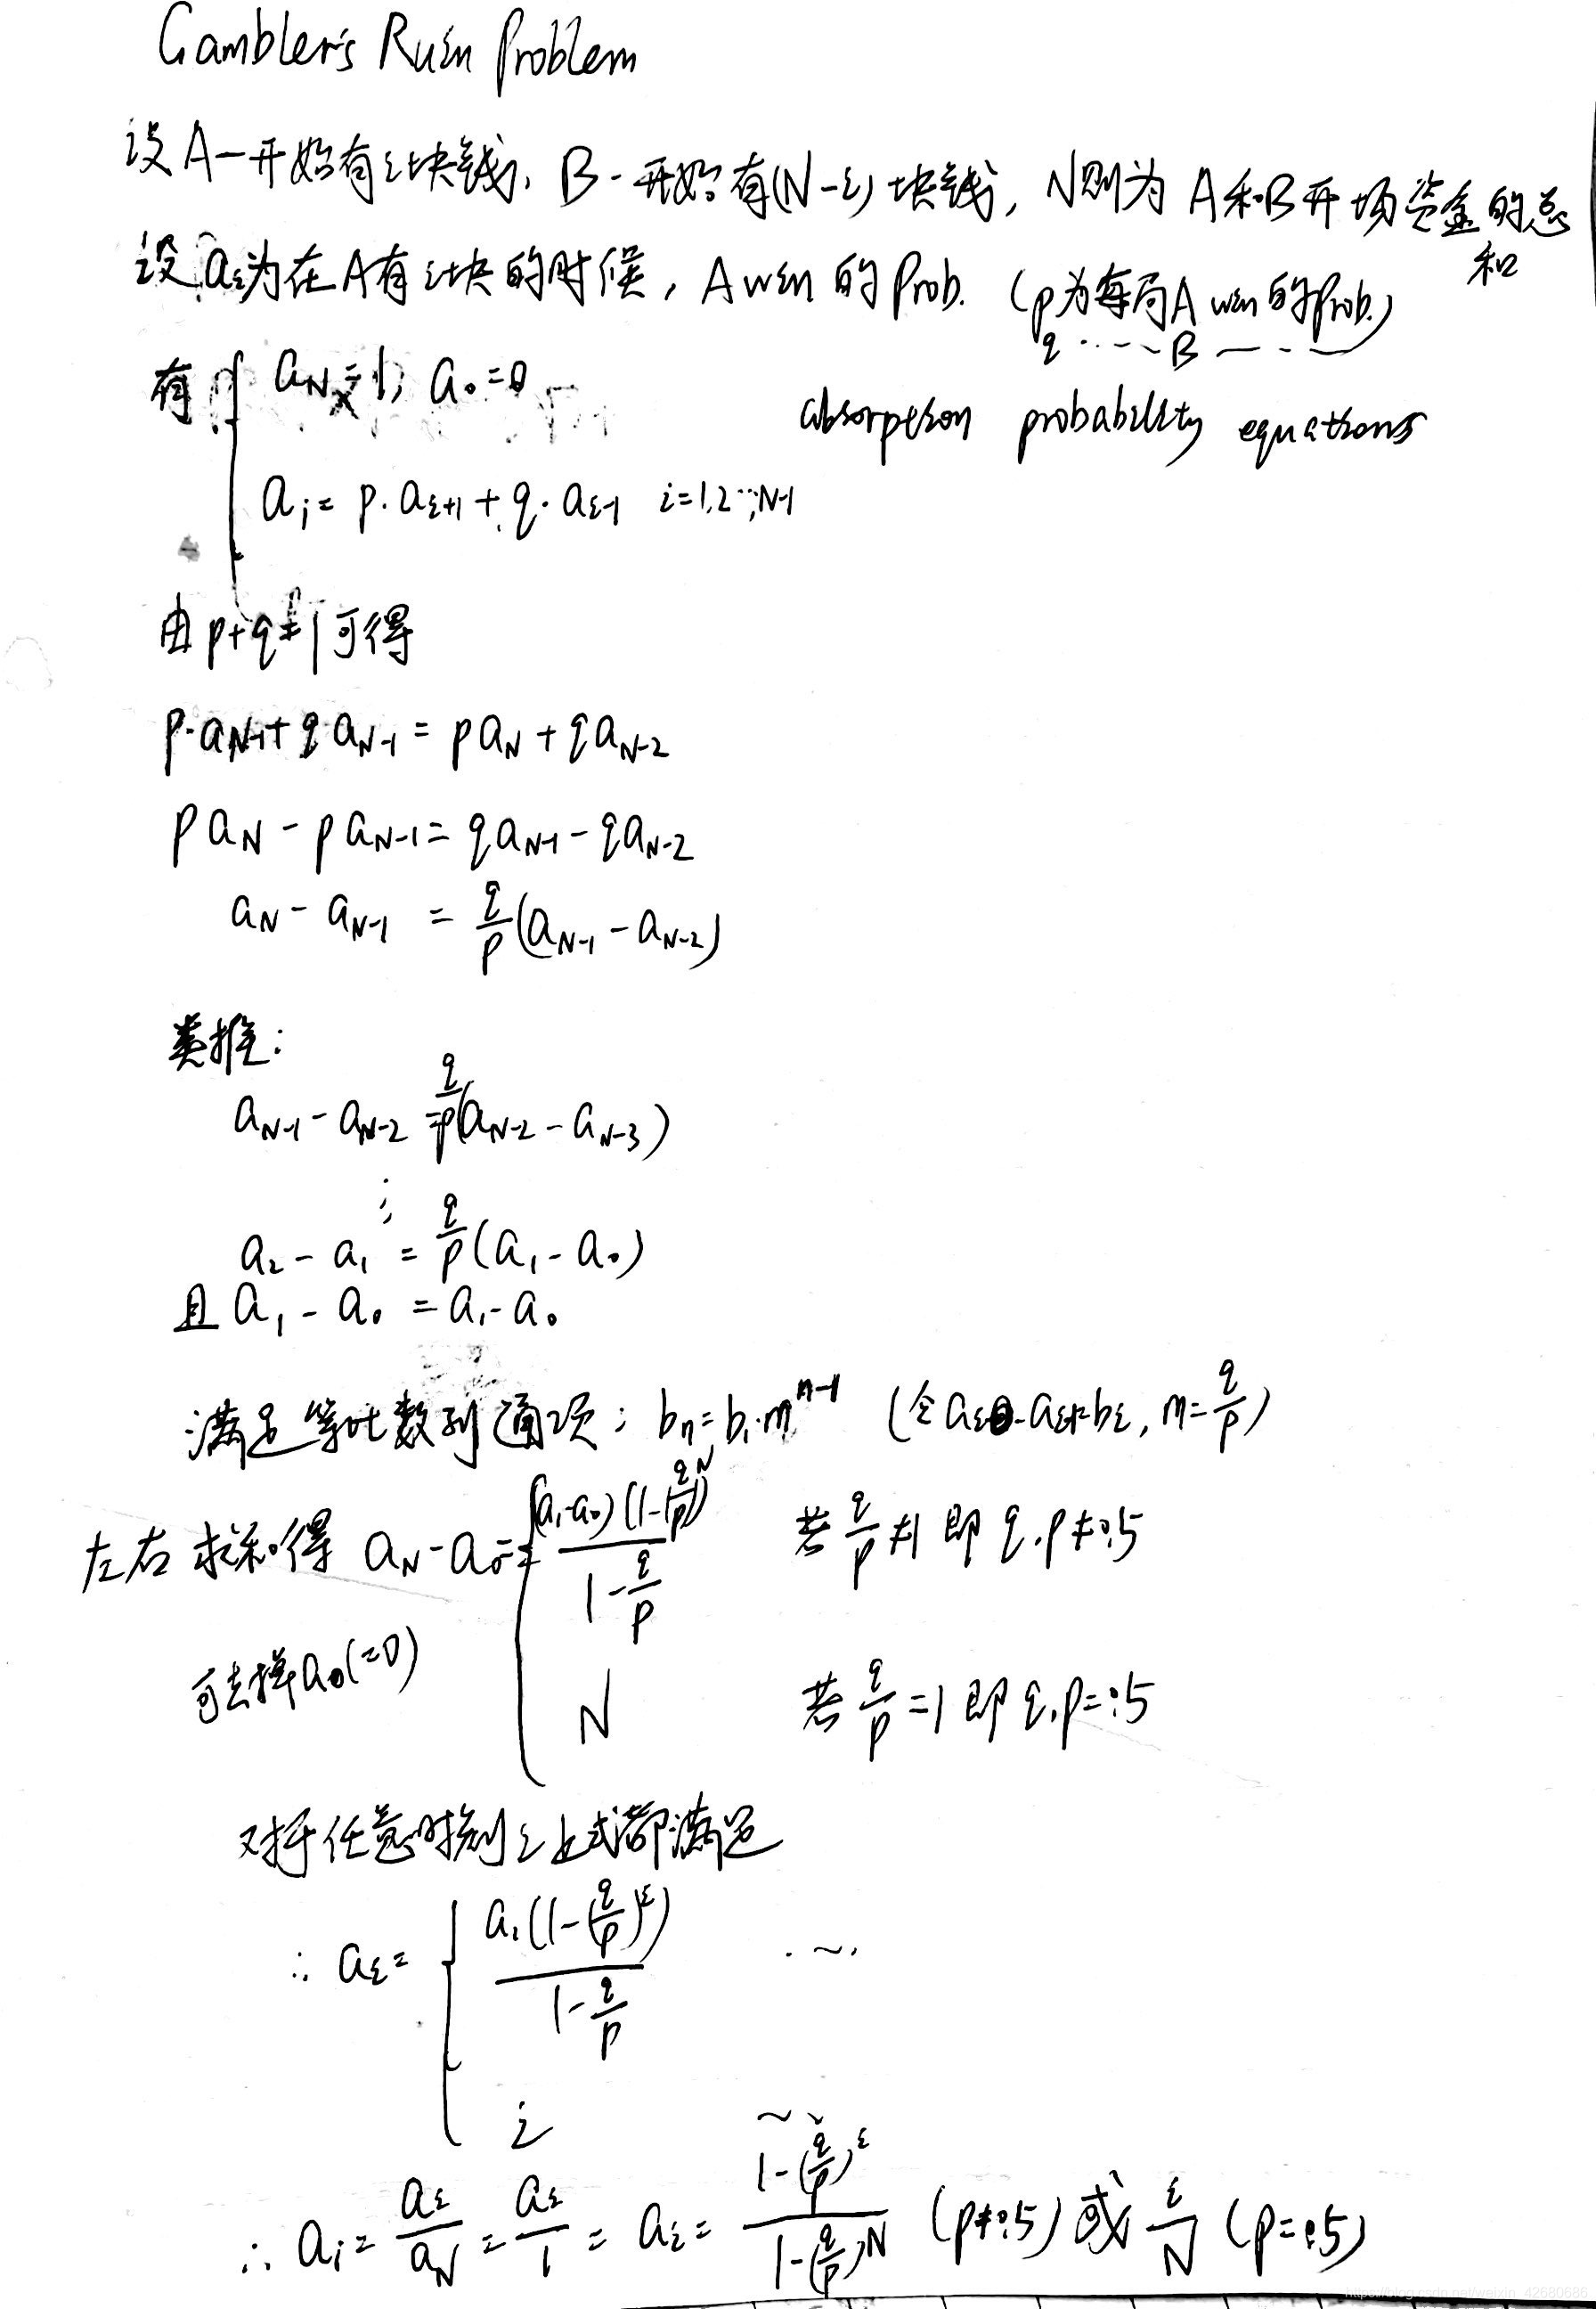 Gambler's Ruin Problem
设A一开始有i块钱, B一开始有(N-i)块钱, N则为A和B开场资金的总和
设aᵢ为在A有i块的时候, A win的Prob. (p为每局A win的Prob.)
q ····· B — · · —
有 { a_N=1, a₀=0
absorption probability equations
aᵢ = p·aᵢ₊₁ + q·aᵢ₋₁ i=1,2…,N-1
由p+q=1可得
p·a_{N-1}+q a_{N-1} = p a_N + q a_{N-2}
p a_N - p a_{N-1} = q a_{N-1} - q a_{N-2}
a_N - a_{N-1} = q/p (a_{N-1} - a_{N-2})
类推:
a_{N-1} - a_{N-2} = q/p (a_{N-2} - a_{N-3})
⋮
a₂ - a₁ = q/p (a₁ - a₀)
且 a₁ - a₀ = a₁ - a₀
满足等比数列通项: bₙ = b₁·mⁿ⁻¹ (令aᵢ-aᵢ₋₁=bᵢ, m=q/p)
左右求和得 a_N - a₀ = { (a₁-a₀)(1-(q/p)^N) / (1-q/p) 若 q/p ≠ 1 即 q,p≠.5
可去掉a₀(=0) N 若 q/p = 1 即 q,p=.5
对于任意时刻i上式都满足
∴ aᵢ = { a₁(1-(q/p)^i) / (1-q/p) · ~ ·
i ~ ~
∴ aᵢ = aᵢ/a_N = aᵢ/1 = aᵢ = (1-(q/p)^i) / (1-(q/p)^N) (p≠.5) 或 i/N (p=.5)
https://blog.csdn.net/weixin_42680686